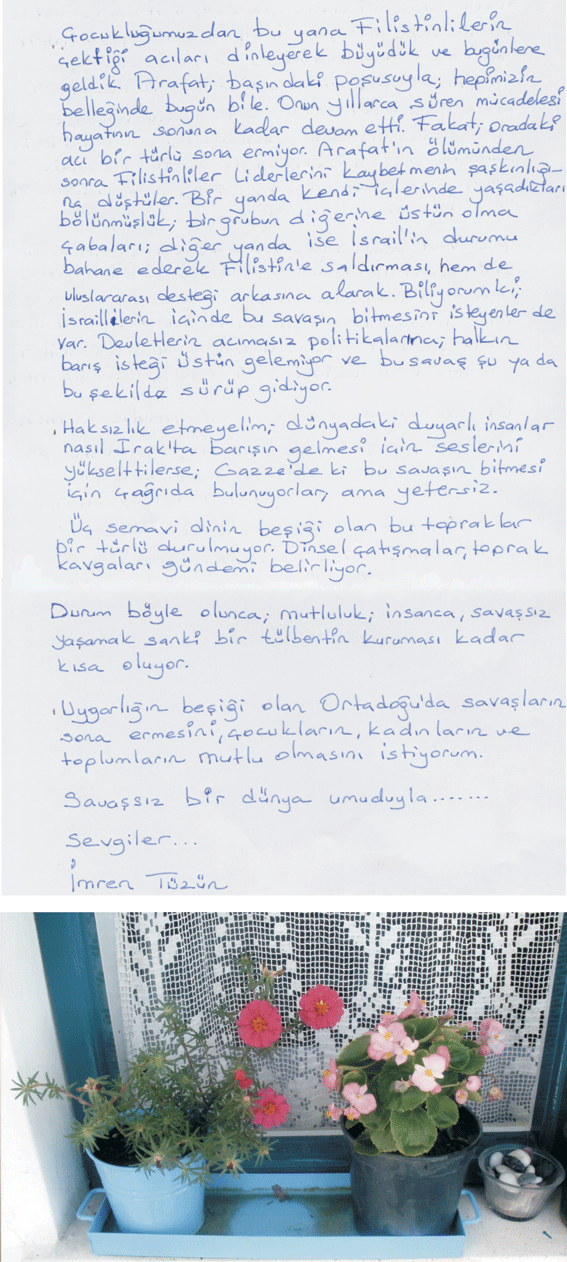 Çocukluğumuzdan bu yana Filistinlilerin
çektiği acıları dinleyerek büyüdük ve bugünlere
geldik. Arafat; başındaki poşusuyla; hepimizin
belleğinde bugün bile. Onun yıllarca süren mücadelesi
hayatının sonuna kadar devam etti. Fakat; oradaki
acı bir türlü sona ermiyor. Arafat'ın ölümünden
sonra Filistinliler Liderlerini kaybetmenin şaşkınlığı-
na düştüler. Bir yanda kendi içlerinde yaşadıkları
bölünmüşlük; bir grubun diğerine üstün olma
çabaları; diğer yanda ise İsrail'in durumu
bahane ederek Filistin'e saldırması, hem de
uluslararası desteği arkasına alarak. Biliyorum ki;
israillilerin içinde bu savaşın bitmesini isteyenler de
var. Devletlerin acımasız politikalarına; halkın
barış isteği üstün gelemiyor ve bu savaş şu ya da
bu şekilde sürüp gidiyor.
Haksızlık etmeyelim; dünyadaki duyarlı insanlar
nasıl Irak'ta barışın gelmesi için seslerini
yükselttilerse; Gazze'de ki bu savaşın bitmesi
için çağrıda bulunuyorlar, ama yetersiz.
Üç semavi dinin beşiği olan bu topraklar
bir türlü durulmuyor. Dinsel çatışmalar, toprak
kavgaları gündemi belirliyor.
Durum böyle olunca; mutluluk; insanca, savaşsız
yaşamak sanki bir tülbentin kuruması kadar
kısa oluyor.
Uygarlığın beşiği olan Ortadoğu'da savaşların
sona ermesini, çocukların, kadınların ve
toplumların mutlu olmasını istiyorum.
Savaşsız bir dünya umuduyla.......
Sevgiler...
İmren Tüzün